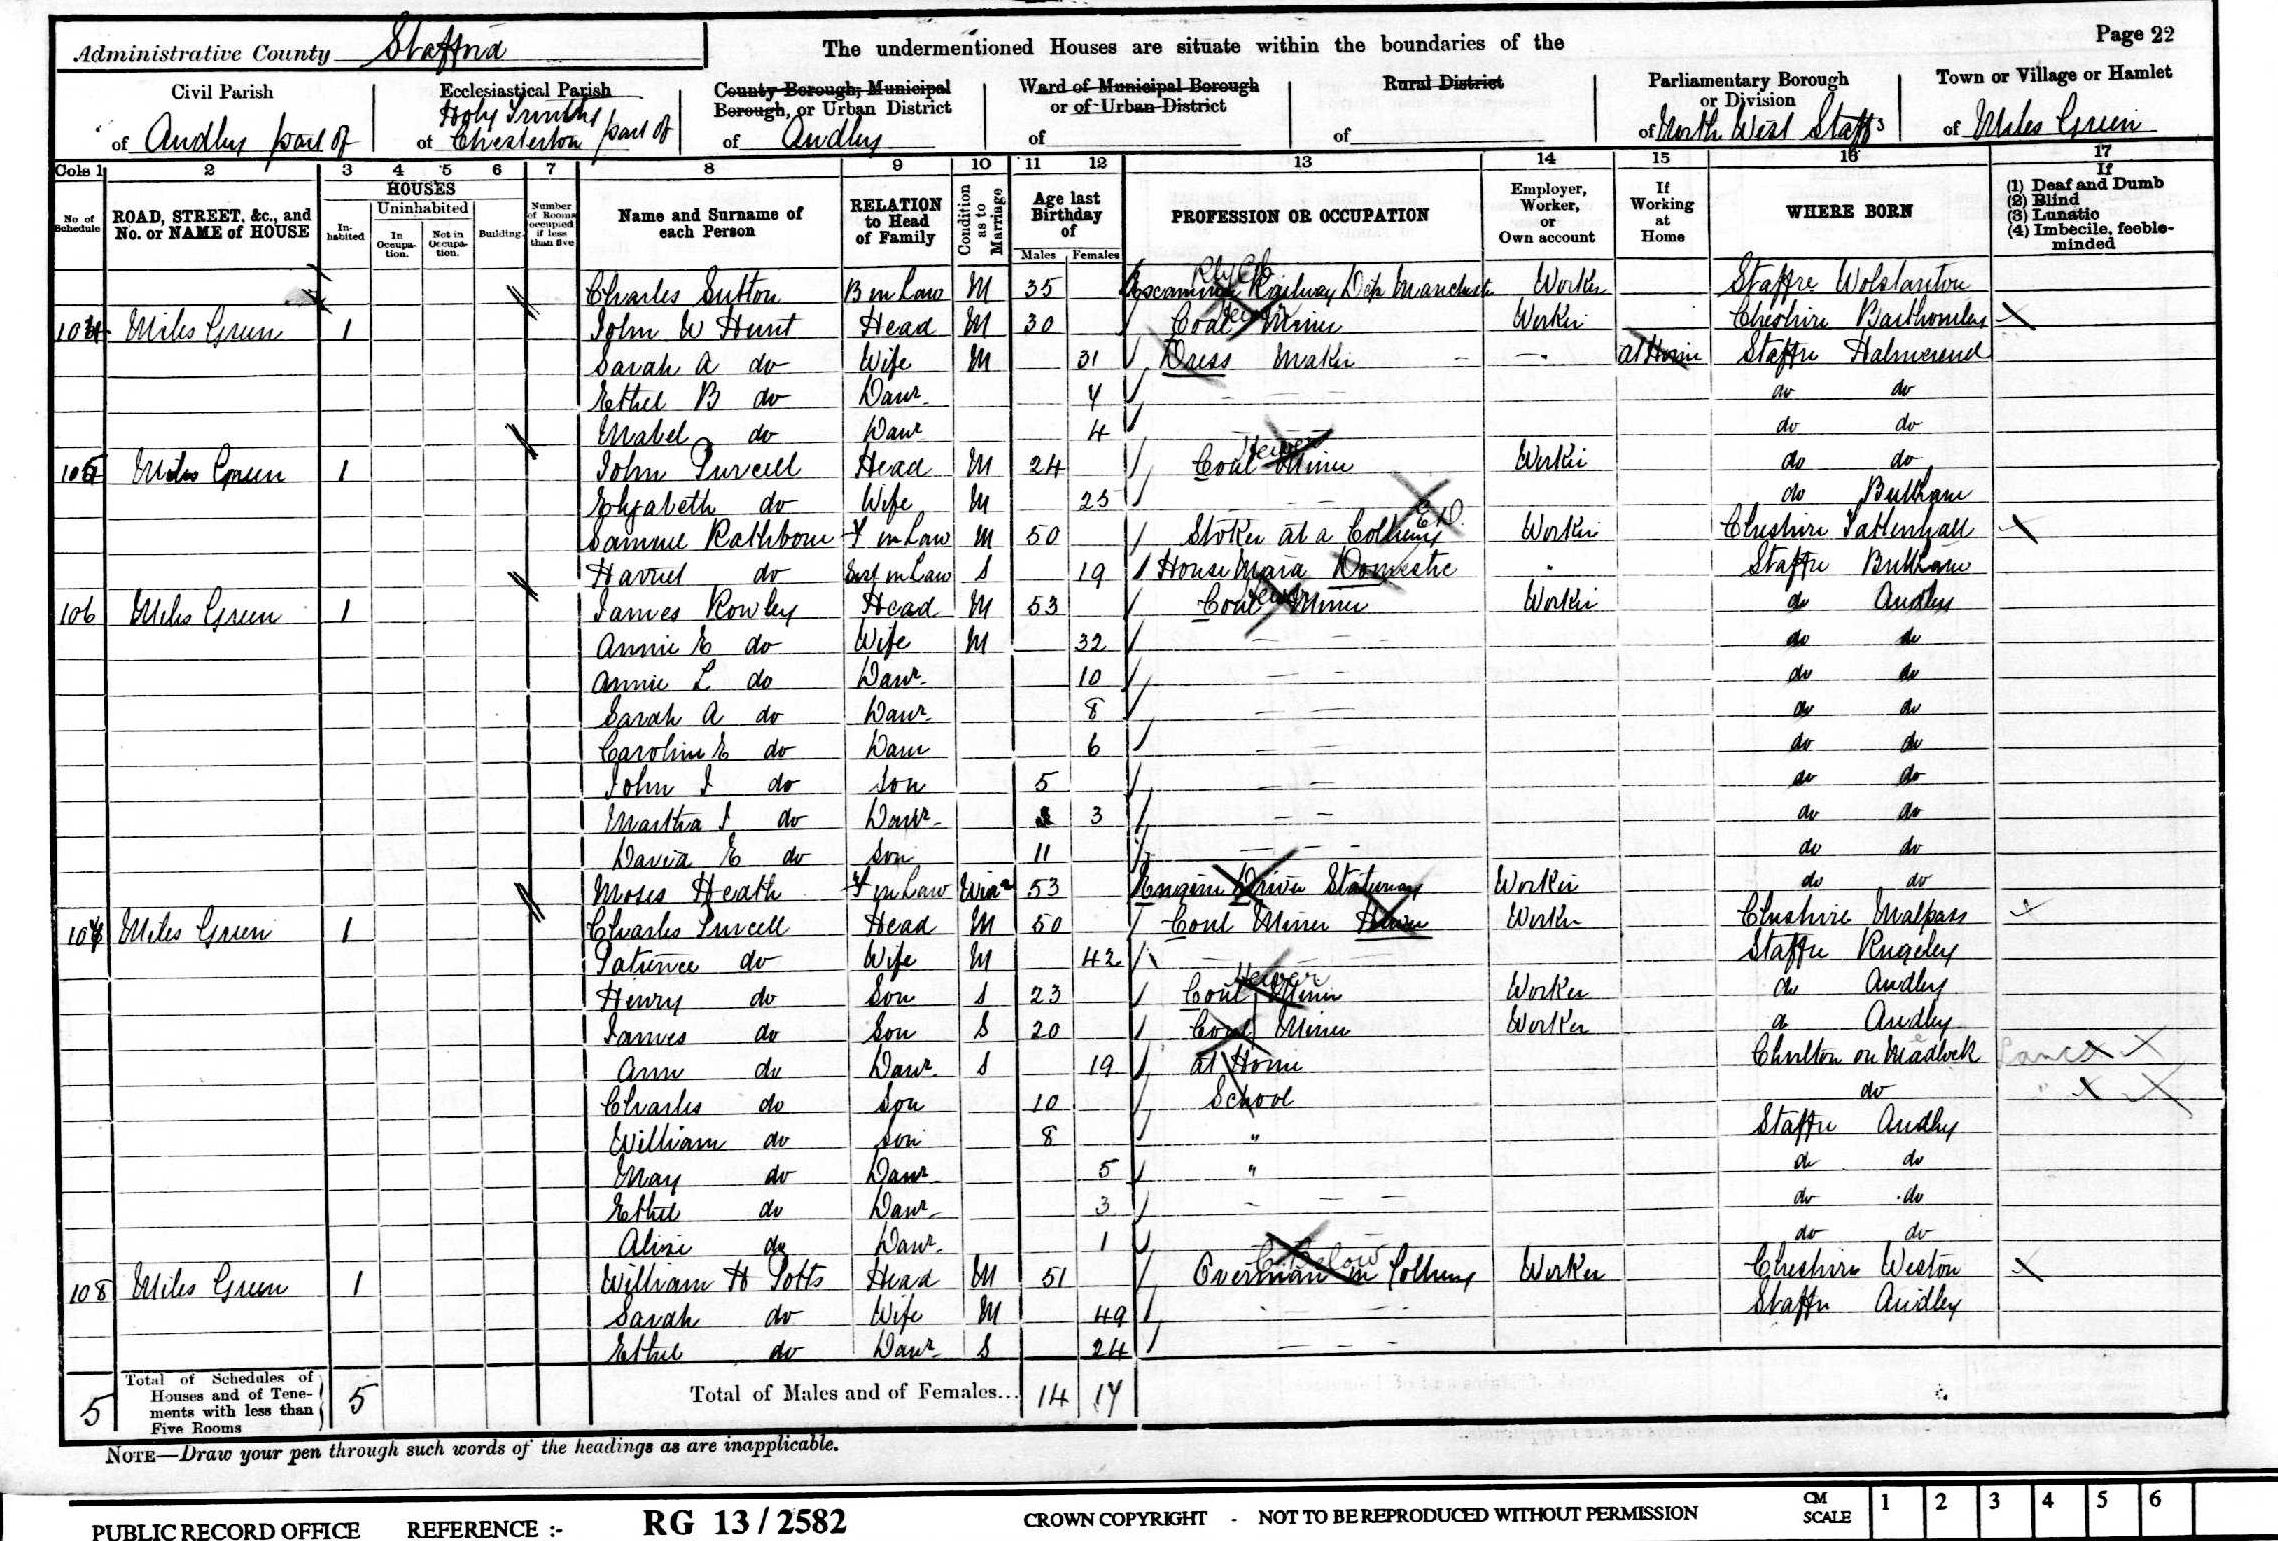 Administrative County Stafford
The undermentioned Houses are situate within the boundaries of the
Page 22
Civil Parish of Audley part of
Ecclesiastical Parish of Holy Trinity Chesterton part of
County Borough, Municipal Borough, or Urban District of Audley
Ward of Municipal Borough or of Urban District of
Rural District of
Parliamentary Borough or Division of North West Staffs
Town or Village or Hamlet of Miles Green
Cols 1 2 3 4 5 6 7 8 9 10 11 12 13 14 15 16 17
No. of Schedule
ROAD, STREET, &c., and No. or NAME of HOUSE
HOUSES
Inhabited
Uninhabited
In Occupation.
Not in Occupation.
Building.
Number of Rooms occupied if less than five
Name and Surname of each Person
RELATION to Head of Family
Condition as to Marriage
Age last Birthday of
Males Females
PROFESSION OR OCCUPATION
Employer, Worker, or Own account
If Working at Home
WHERE BORN
If
(1) Deaf and Dumb
(2) Blind
(3) Lunatic
(4) Imbecile, feeble-minded
Charles Sutton B in Law M 35 Railway Worker Staffre Wolstanton
104 Miles Green 1 John W Hunt Head M 30 Coal Miner Worker Cheshire
Sarah A do Wife M 31 Dress Maker at Home Staffre Halmerend
Ethel B do Daur 4 do do
Mabel do Daur 4 do do
105 Miles Green 1 John Purcell Head M 24 Coal Hewer Miner Worker do do
Elizabeth do Wife M 25 do
Samuel Rathbone F in Law M 50 Stoker at a Colliery Worker Cheshire Tattenhall
do in Law S 19 House Maid Domestic Staffre
106 Miles Green 1 James Rowley Head M 53 Coal Hewer Miner Worker do Audley
Annie E do Wife M 32 do do
Annie L do Daur 10 do do
Sarah A do Daur 8 do do
Caroline E do Daur 6 do do
John J do Son 5 do do
Martha J do Daur 3 do do
David E do Son 11 do do
Moses Heath F in Law Widr 53 Engine Driver Stationary Worker do do
107 Miles Green 1 Charles Purcell Head M 50 Coal Miner Hewer Worker Cheshire Malpass
Patience do Wife M 42 Staffre Rugeley
Henry do Son S 23 Coal Hewer Miner Worker do Audley
James do Son S 20 Coal Miner Worker do Audley
Ann do Daur S 19 at Home Chorlton on Madlock Lancs
Charles do Son 10 School do "
William do Son 8 " Staffre Audley
May do Daur 5 " do do
Ethel do Daur 3 do do
do Daur 1 do do
108 Miles Green 1 William H Potts Head M 51 Overman in Colliery Below Worker Cheshire Weston
Sarah do Wife M 49 Staffre Audley
Ethel do Daur S 24
5 Total of Schedules of Houses and of Tenements with less than Five Rooms 5
Total of Males and of Females... 14 17
NOTE—Draw your pen through such words of the headings as are inapplicable.
PUBLIC RECORD OFFICE REFERENCE :- RG 13 / 2582 CROWN COPYRIGHT - NOT TO BE REPRODUCED WITHOUT PERMISSION CM SCALE 1 2 3 4 5 6